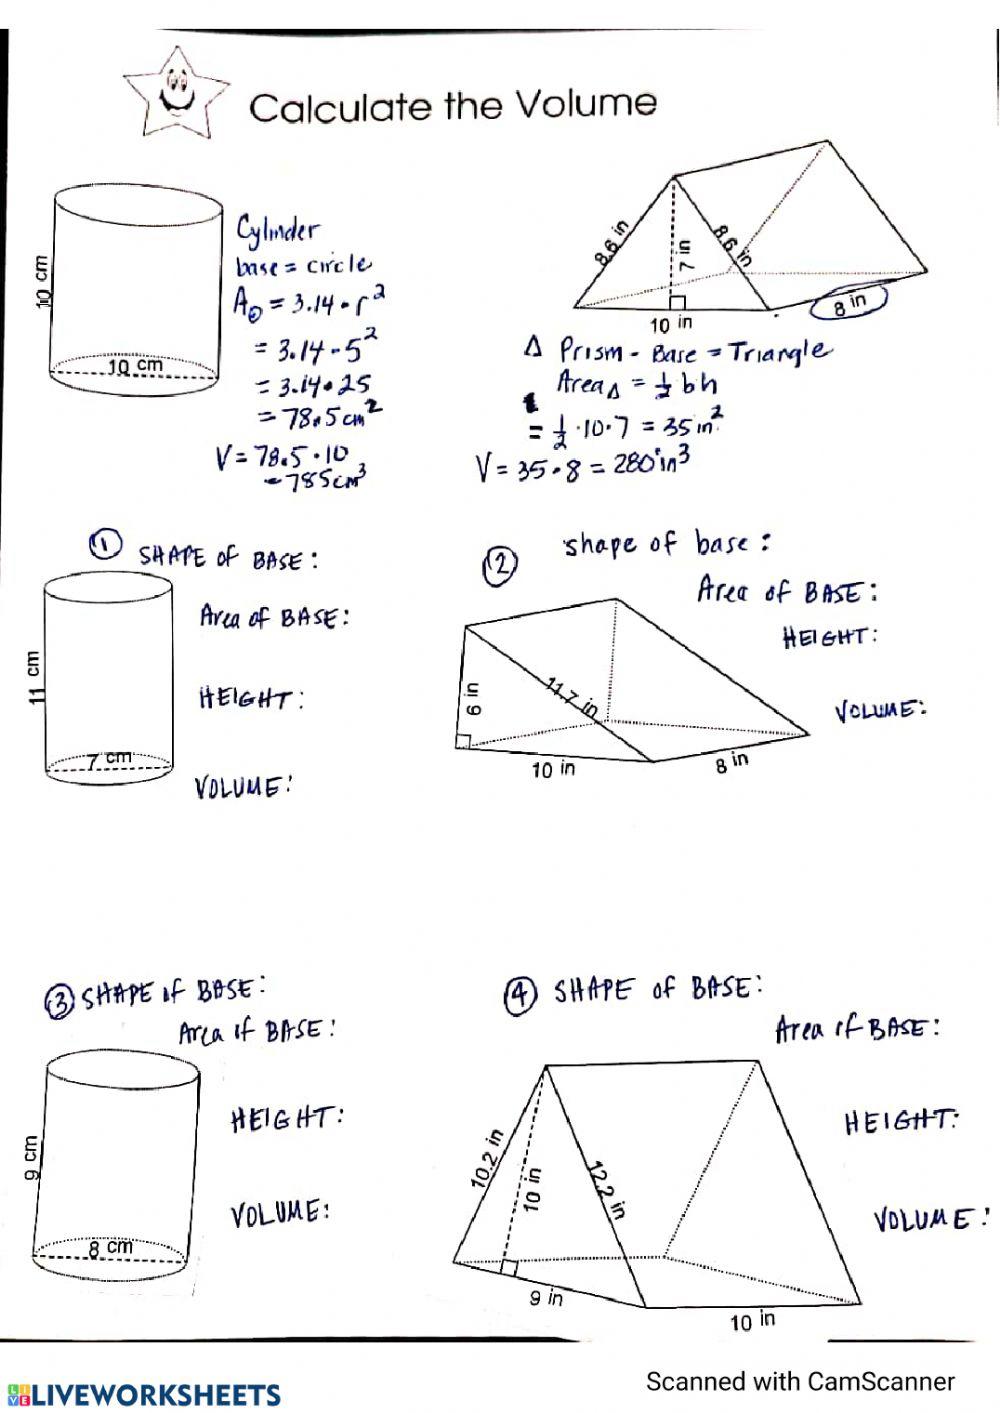 Calculate the Volume
10 cm
10 cm
Cylinder
base = circle
A⊙ = 3.14 • r²
= 3.14 • 5²
= 3.14 • 25
= 78.5 cm²
V = 78.5 • 10
= 785 cm³
8.6 in
7 in
8.6 in
10 in
8 in
Δ Prism - Base = Triangle
Area Δ = ½ b h
= ½ • 10 • 7 = 35 in²
V = 35 • 8 = 280 in³
① SHAPE of BASE:
Area of BASE:
HEIGHT:
VOLUME:
11 cm
7 cm
② shape of base:
Area of BASE:
HEIGHT:
VOLUME:
6 in
11.7 in
10 in
8 in
③ SHAPE of BASE:
Area of BASE:
HEIGHT:
VOLUME:
9 cm
8 cm
④ SHAPE of BASE:
Area of BASE:
HEIGHT:
VOLUME:
10.2 in
10 in
12.2 in
9 in
10 in
Scanned with CamScanner
LIVE
LIVEWORKSHEETS